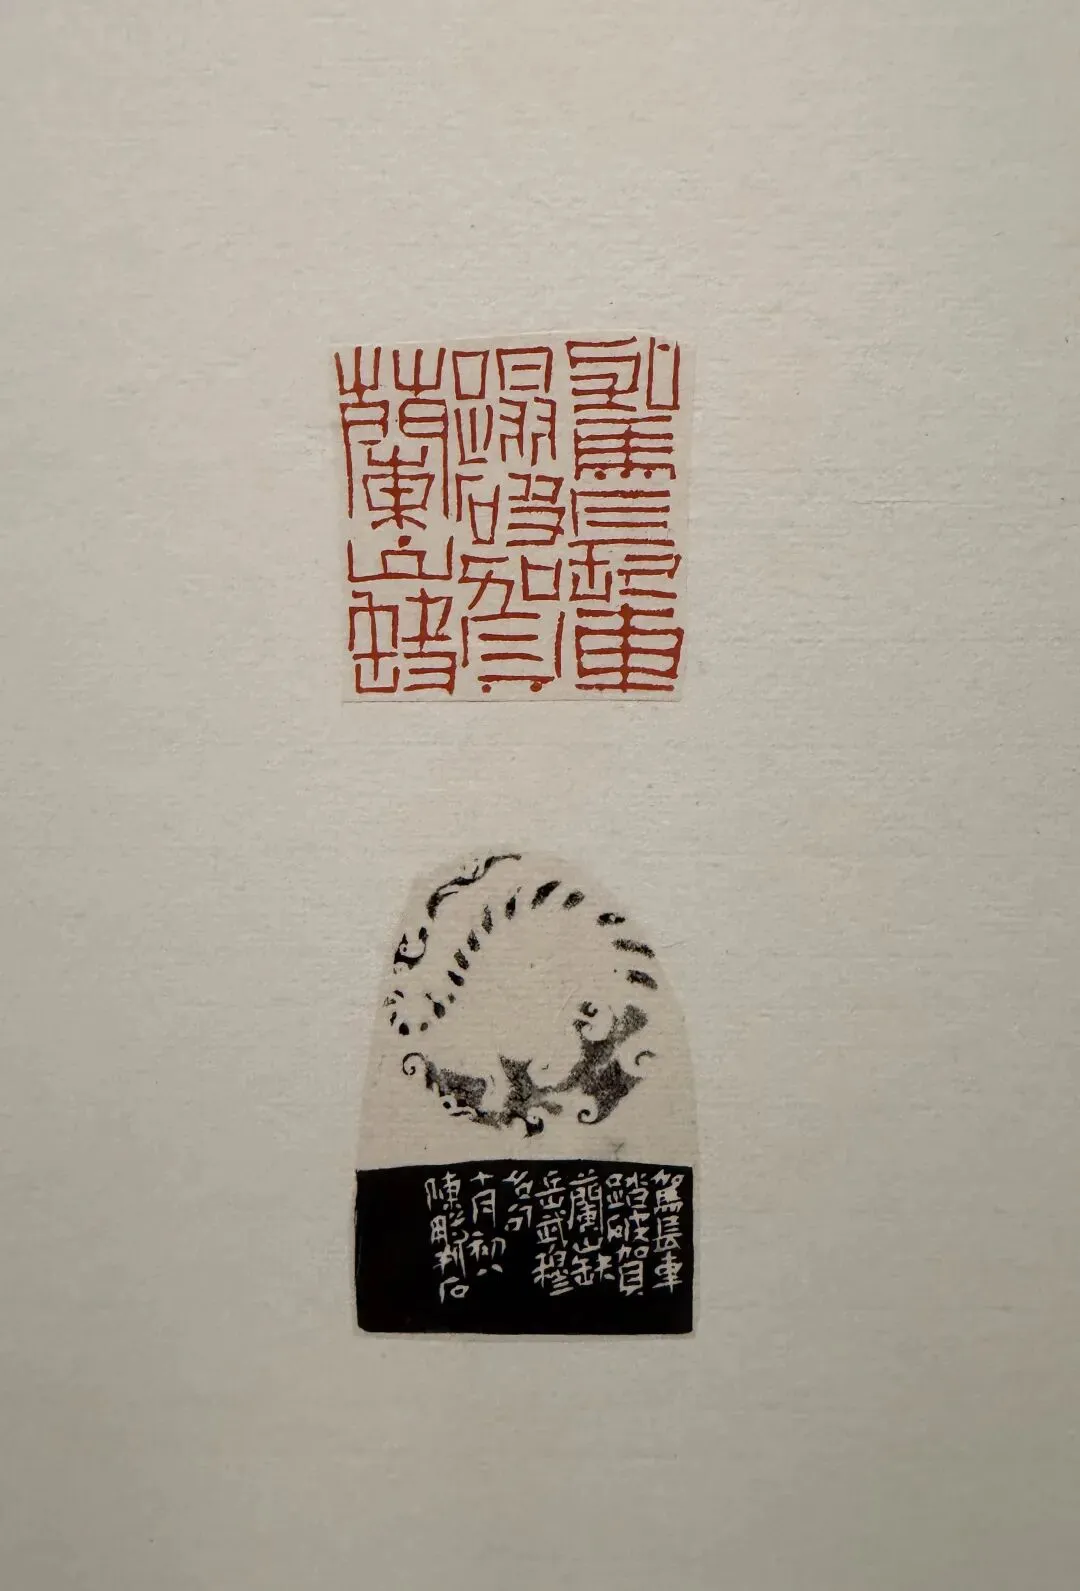 駕長車
蹋破賀
蘭山缺
駕長車
踏破賀
蘭山缺
岳武穆
名句
十月初八
陳鵬石